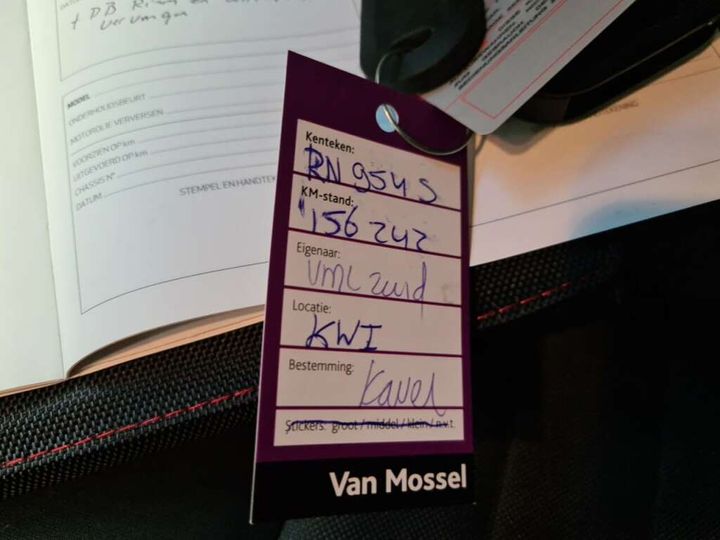 + DB
MODEL
ONDERHOUDSBEURT
MOTOROLIE VERVERSEN
VOORZIEN OP km
UITGEVOERD OP km
CHASSIS N°
DATUM
STEMPEL EN HANDTEK
Kenteken:
RN 954 S
KM-stand:
156 242
Eigenaar:
VML zuid
Locatie:
KWI
Bestemming:
Kavel
Stickers: groot / middel / klein / n.v.t.
Van Mossel